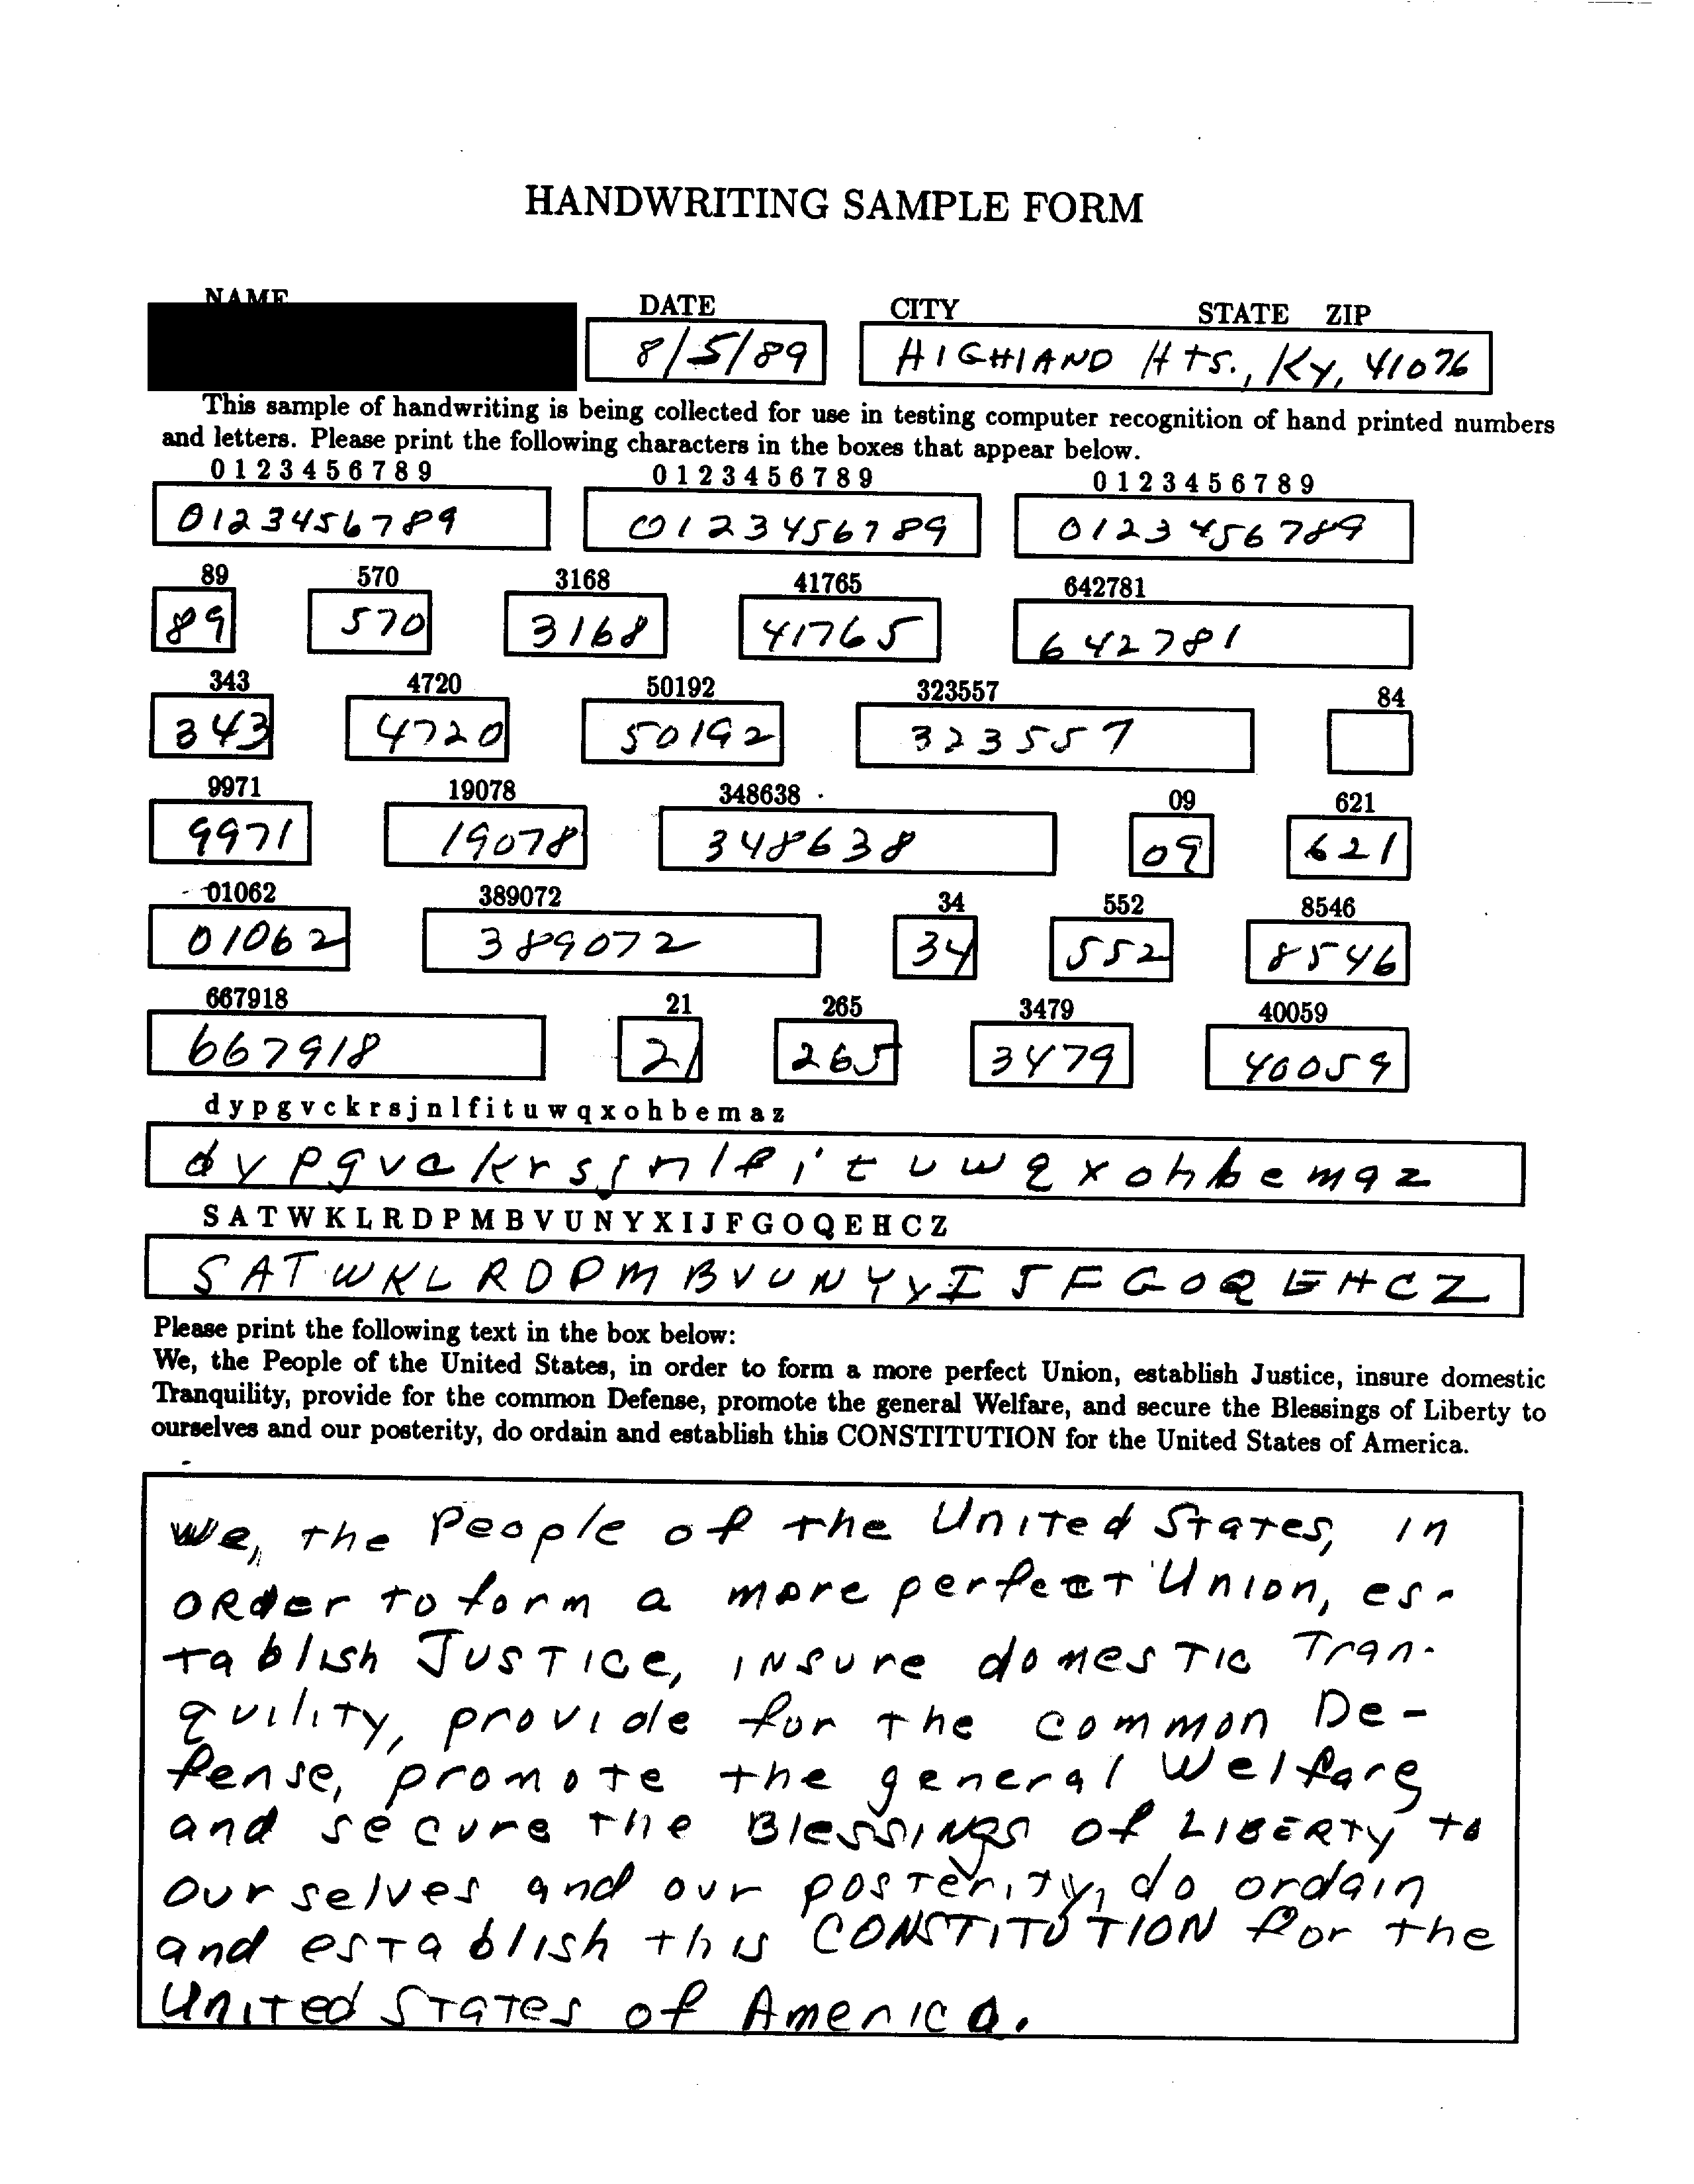 HANDWRITING SAMPLE FORM
NAME DATE CITY STATE ZIP
8/5/89 HIGHLAND HTS., KY, 41076
This sample of handwriting is being collected for use in testing computer recognition of hand printed numbers
and letters. Please print the following characters in the boxes that appear below.
0 1 2 3 4 5 6 7 8 9 0 1 2 3 4 5 6 7 8 9 0 1 2 3 4 5 6 7 8 9
0123456789 0123456789 0123456789
89 570 3168 41765 642781
89 570 3168 41765 642781
343 4720 50192 323557 84
343 4720 50192 323557
9971 19078 348638 09 621
9971 19078 348638 09 621
01062 389072 34 552 8546
01062 389072 34 552 8546
667918 21 265 3479 40059
667918 21 265 3479 40059
d y p g v c k r s j n l f i t u w q x o h b e m a z
d y p g v c k r s j n l f i t u w q x o h b e m a z
S A T W K L R D P M B V U N Y X I J F G O Q E H C Z
S A T W K L R D P M B V U N Y Y I J F G O Q E H C Z
Please print the following text in the box below:
We, the People of the United States, in order to form a more perfect Union, establish Justice, insure domestic
Tranquility, provide for the common Defense, promote the general Welfare, and secure the Blessings of Liberty to
ourselves and our posterity, do ordain and establish this CONSTITUTION for the United States of America.
We, the People of the United States, in
ORder to form a more perfect Union, es-
tablish Justice, insure domestic Tran-
quility, provide for the common De-
fense, promote the general Welfare,
and secure the Blessings of LIBERTY to
ourselves and our posterity, do ordain
and establish this CONSTITUTION for the
United States of America.